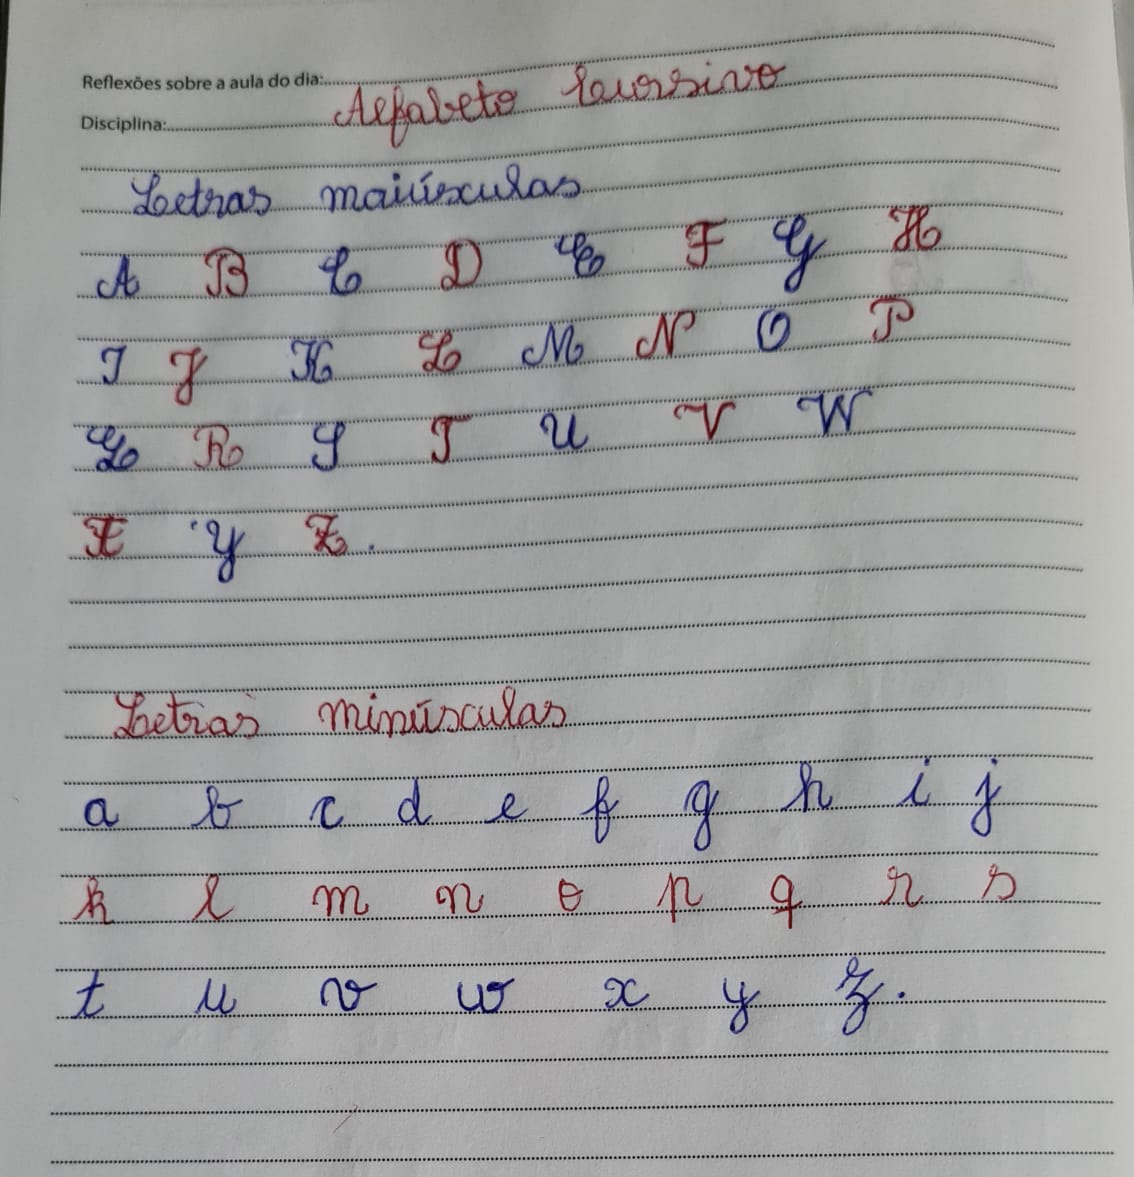 Reflexões sobre a aula do dia:
Disciplina:
Alfabeto Cursivo
Letras maiúsculas
A B C D E F G H
I J K L M N O P
Q R S T U V W
X Y Z.
Letras minúsculas
a b c d e f g h i j
k l m n o p q r s
t u v w x y z.